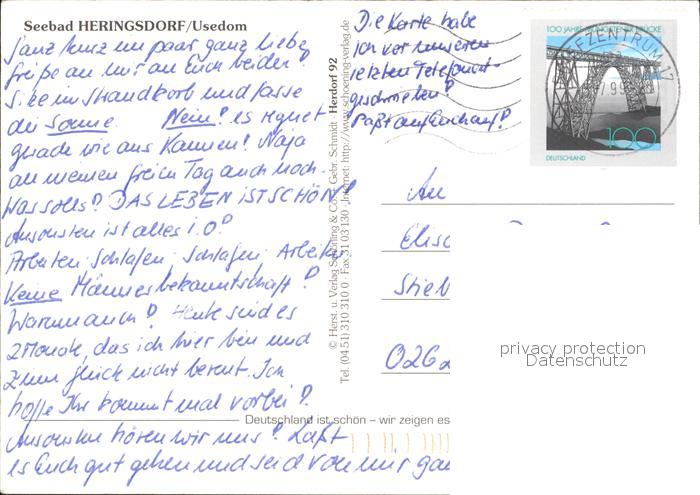 Seebad HERINGSDORF/Usedom
Ganz kurz ein paar ganz liebe
Grüße an mir an Euch beiden!
Sitze im Strandkorb und lasse
die Sonne. Nein! es regnet
gerade wie aus Kannen! Naja
an meinem freien Tag auch noch.
Was solls? DAS LEBEN IST SCHÖN!
Ansonsten ist alles i.O.!
Arbeiten, schlafen, schlafen, Arbeiten.
Keine Männerbekanntschaft!
Warum auch? Heute sind es
2 Monate, das ich hier bin und
zum Glück nicht bereut. Ich
hoffe Ihr kommt mal vorbei?
Ansonsten hören wir uns! Laßt
es Euch gut gehen und seid von mir
Die Karte habe
ich vor unseren
letzten Telefonat
geschrieben!
Paßt auf Euch auf!
© Herst. u. Verlag Schöning & Co + Gebr. Schmidt · Herdorf 92
Tel. (04 51) 310 310 0 · Fax 31 03 130 · Internet: http://www.schoening-verlag.de
100 JAHRE BRÜCKE
100
DEUTSCHLAND
An
Stieb
026
Deutschland ist schön – wir zeigen es
privacy protection
Datenschutz